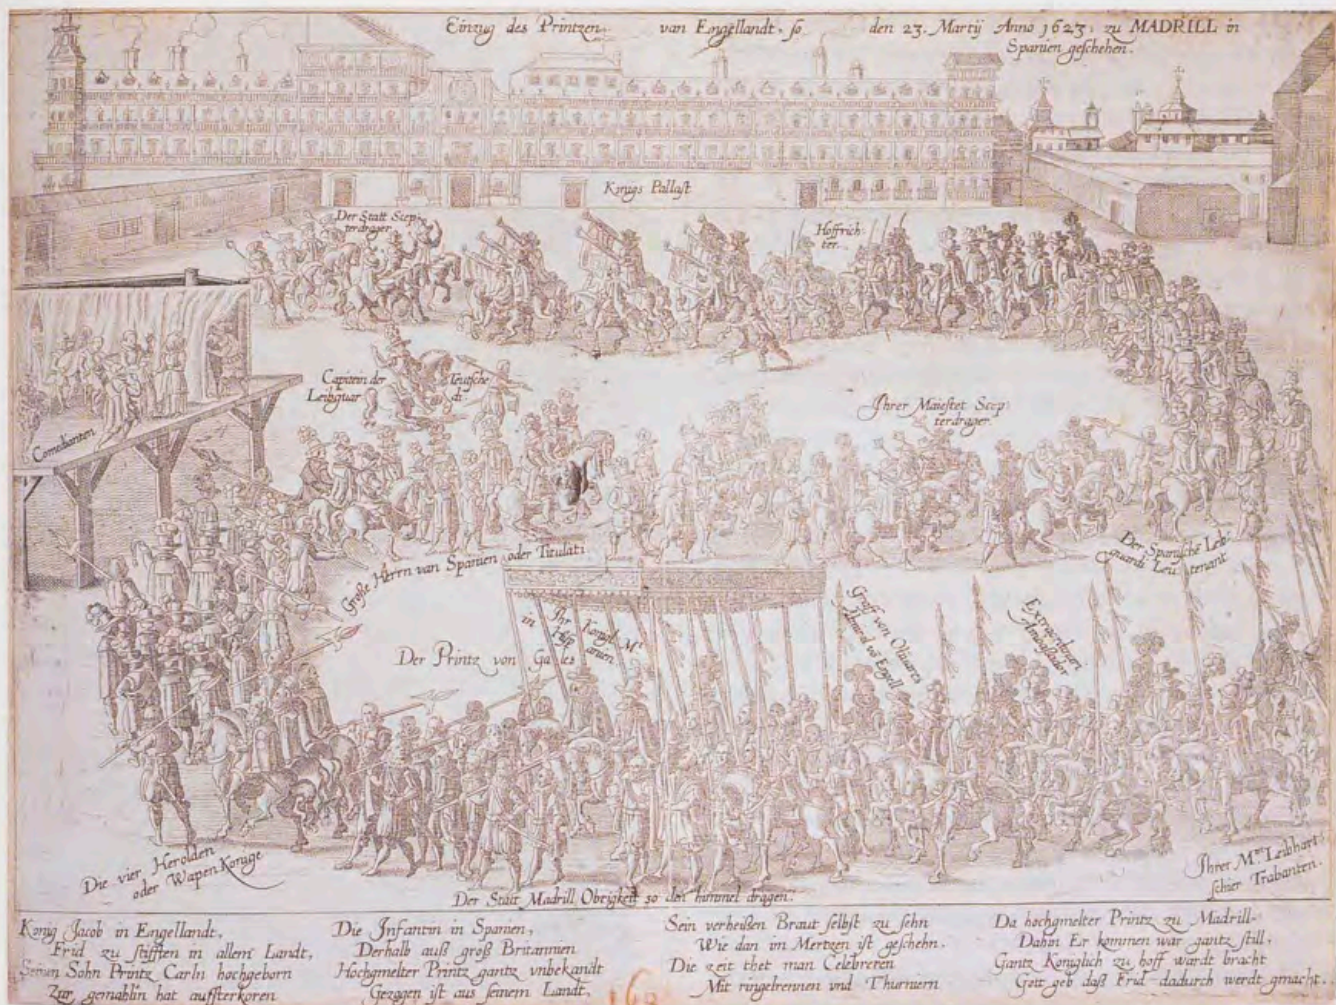 Einzug des Printzen van Engellandt, so den 23. Martij Anno 1623, zu MADRILL in
Spanien geschehen.
Konigs Pallast
Der Statt Scep-
terdrager
Hoffrich-
ter.
Comedianten
Capitein der
Leibguar
Teutsche
di
Ihrer Maiestet Scep-
terdrager.
Große Herrn van Spanien oder Titulati
Der Spanische Leib
guardi Leutenant
Der Printz von Galles
Ihr Konigl. Mt
in Hispanien
Graff von Olivares
Extraordinari
Ambassador
Die vier Herolden
oder Wapen Koninge
Der Statt Madrill Obrigkeit so den himmel dragen.
Ihrer Mt. Leibhart
schier Trabanten.
Konig Jacob in Engellandt,
Frid zu stifften in allem Landt,
Seinen Sohn Printz Carln hochgeborn
Zur gemahlin hat aufserkoren
Die Infantin in Spanien,
Derhalb auß groß Britannien
Hochgmelter Printz gantz vnbekandt
Gezogen ist aus seinem Landt,
Sein verheißen Braut selbst zu sehn
Wie dan im Mertzen ist geschehn.
Die zeit thet man Celebreren
Mit ringelrennen vnd Thurniern
Da hochgmelter Printz zu Madrill
Dahin Er kommen war gantz still,
Gantz Koniglich zu hoff wardt bracht
Gott geb daß Frid dadurch werdt gmacht.